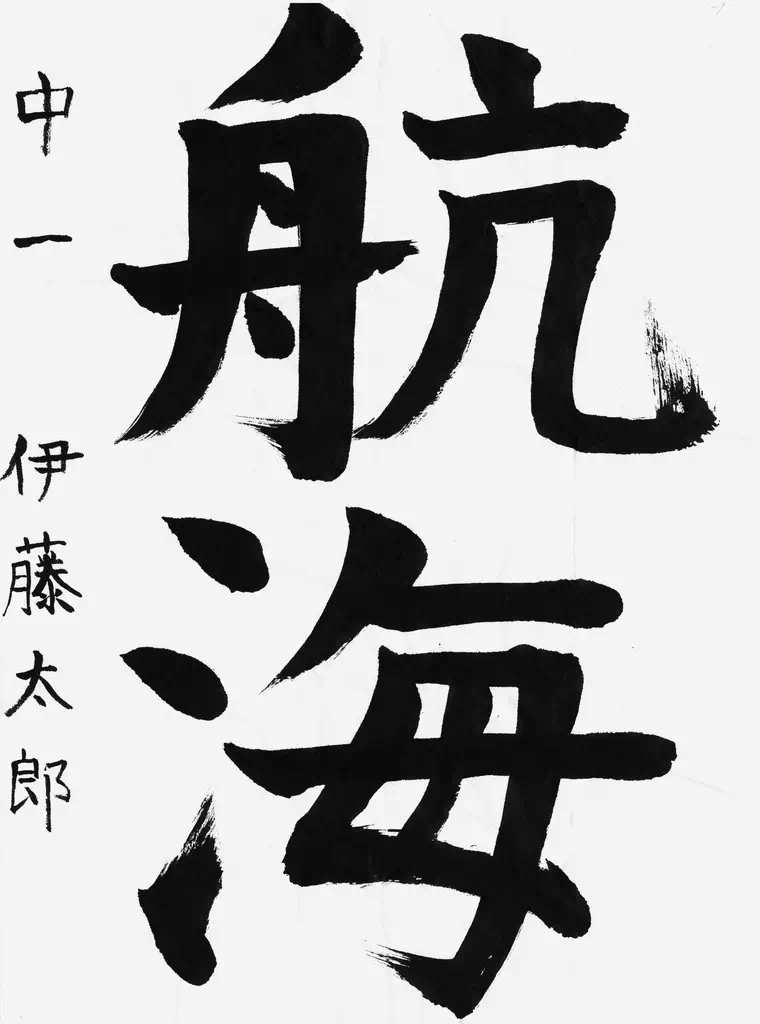 航海
中一 伊藤太郎